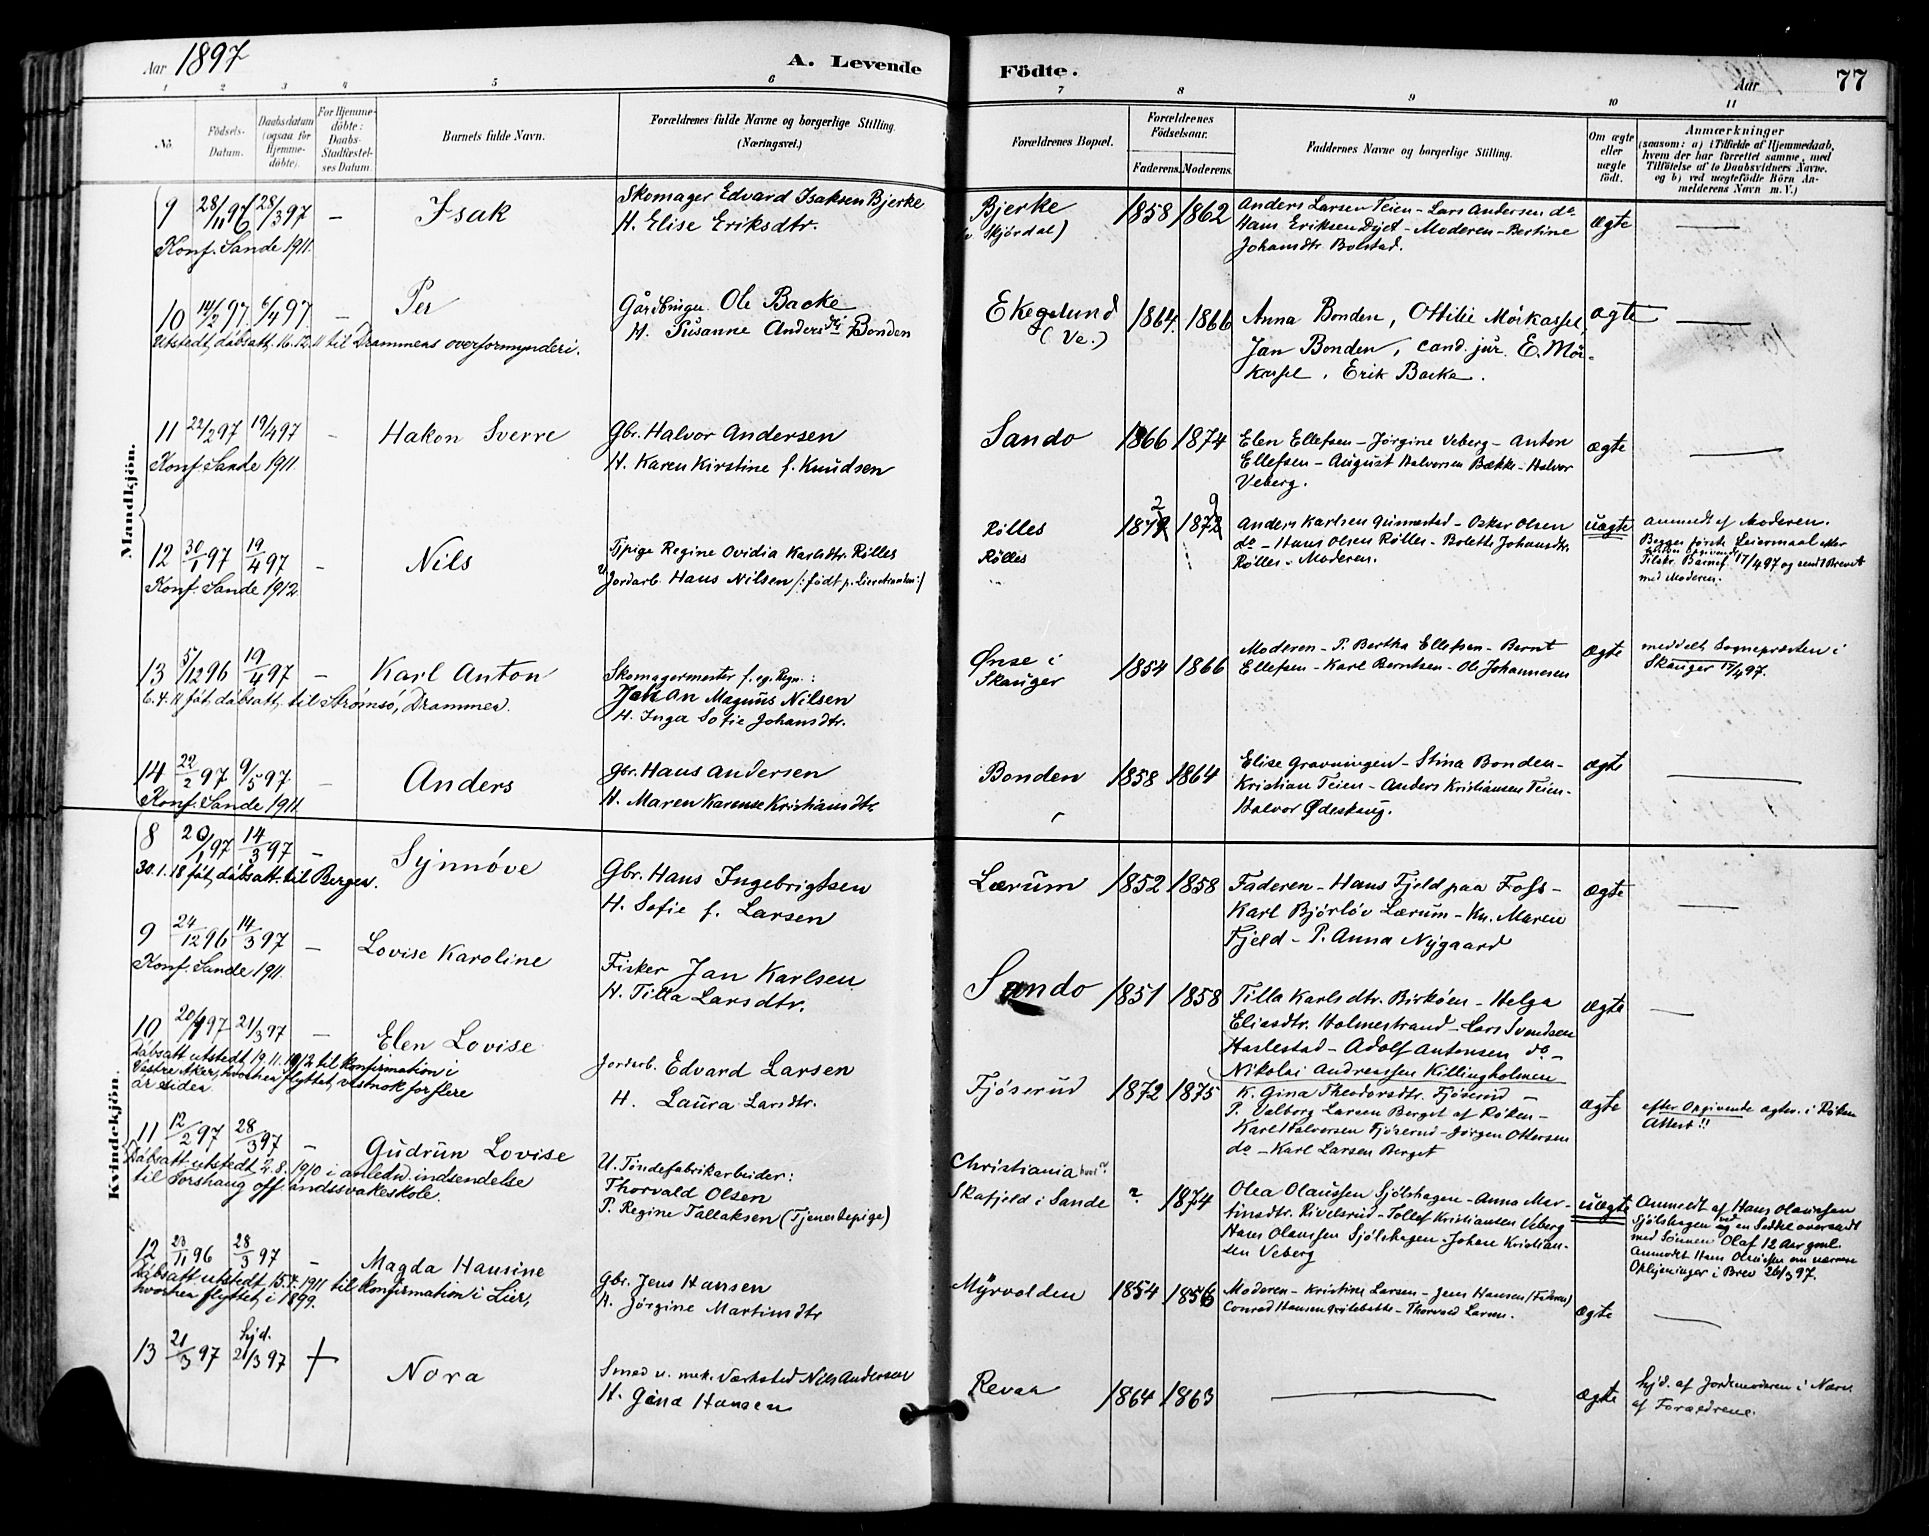 Aar 1897
A. Levende
Födte.
Aar
77
1 2 3 4 5 6 7 8 9 10 11
No.
Födsels-
Datum.
Daabsdatum
(ogsaa for
Hjemme-
döbte).
For Hjemme-
döbte:
Daabs-
Stadfæstel-
ses Datum.
Barnets fulde Navn.
Forældrenes fulde Navne og borgerlige Stilling
(Næringsvei.)
Forældrenes Bopæl.
Forældrenes
Födselsaar.
Faderens. Moderens.
Faddernes Navne og borgerlige Stilling.
Om ægte
eller
uægte
født.
Anmærkninger
(saasom: a) i Tilfælde af Hjemmedaab,
hvem der har forrettet samme, med
Tilföielse af to Daabsvidners Navne.
og b) ved uægtefödte Börn An-
melderens Navn m. V.)
Mandkjön.
9 28/11 96 28/3 97 – Isak
Konf. Sande 1911.
Skomager Edvard Isaksen Bjerke
H. Elise Eriksdtr.
Bjerke
Skjórdal)
1858 1862
Anders Larsen Teien – Lars Andersen do
Hans Eriksen – Moderen – Bertine
Johansdtr. Bolstad.
ægte
10 14/2 97 6/4 97 – Per
Utstedt dåbsatt. 16.12.11 til Drammens overformynderi.
Gårdbruger Ole Backe
H. Susanne Andersdtr Bonden
Ekeglund
(Ve.)
1864 1866
Anna Bonden, Ottilie Mörkassel,
Jan Bonden, cand. jur. E. Mör-
kassel, Erik Backe.
ægte
11 22/2 97 19/4 97 – Hakon Sverre
Konf. Sande 1911.
Gbr. Halvor Andersen
H. Karen Kirstine f. Knudsen
Sando
1866 1874
Elen Ellefsen – Jörgine Veberg – Anton
Ellefsen – August Halvorsen Bække – Halvor
Veberg.
ægte
12 30/1 97 19/4 97 – Nils
Konf. Sande 1912.
Tjpige Regine Ovidia Karlsdtr. Rölles
Jordarb. Hans Nilsen /: født p. Lierstranden :/
Rölles
Rölles
2 9
1872 1872
Anders Karlsen Gunnestad – Oskar Olsen
do – Hans Olsen Rölles – Bolette Johansdtr.
Rölles – Moderen.
uægte
anmeldt af Moderen.
Begges første Leiermaal efter
17/4 97 og sendt Brevet
med Moderen.
13 5/12 96 19/4 97 – Karl Anton
6.4.11 fåt dåbsatt. til Strømsø, Drammen.
Skomagermester f. eg. Regn.:
Johan Magnus Nilsen
H. Inga Sofie Johansdtr.
Ønse i
Skauger
1854 1866
Moderen – P. Bertha Ellefsen – Bernt
Ellefsen – Karl Berntsen – Ole Johannesen
ægte
meddelt Sognepræsten i
Skauger 19/4 97.
14 22/2 97 9/5 97 – Anders
Konf. Sande 1911
Gbr. Hans Andersen
H. Maren Karense Kristiansdtr.
Bonden
1858 1864
Elise Gravningen – Stina Bonden –
Kristian Teien – Anders Kristiansen Teien –
Halvor Ødeskaug.
ægte
Kvindekjön.
8 20/1 97 14/3 97 – Synnöve
30.1.18 fåt dåbsatt. til Bergen.
Gbr. Hans Ingebrigtsen
H. Sofie f. Larsen
Lærum
1852 1858
Faderen – Hans Fjeld paa Foss –
Karl Björlöv Lærum – Kn. Maren
Fjeld – P. Anna Nygaard
ægte
9 24/12 96 14/3 97 – Lovise Karoline
Konf. Sande 1911.
Fisker Jan Karlsen
H. Tilla Larsdtr.
Sando
1851 1858
Tilla Karlsdtr. Birköen – Helga
Eliasdtr. Holmestrand – Lars Svendsen
Harlestad – Adolf Antonsen do –
Nikolai Andreassen Killingholmen
ægte
10 20/1 97 21/3 97 – Elen Lovise
Dåbsatt utstedt 19.11.1912 til konfirmation i
Vestre Aker, hvorhen flyttet, vistnok for flere
år siden
Jordarb. Edvard Larsen
H. Laura Larsdtr.
Fjöserud
1872 1875
K. Gina Theodorsdtr. Fjöserud –
P. Valborg Larsen Berget af Röken –
Karl Halvorsen Fjöserud – Jörgen Ottersen
do – Karl Larsen Berget
ægte
efter Opgivende ægtev. i Röken
Attest!!
11 12/2 97 28/3 97 – Gudrun Lovise
Dåbsatt utstedt 2.8.1910 i anledn. indsendelse
til Torshaug off. åndssvakeskole.
U. Tøndefabrikarbeider:
Thorvald Olsen
P. Regine Tallaksen (Tjenestepige)
Christiania hvor?
Skafjeld i Sande
? 1874
Olea Olaussen Sjölshagen – Anna Mar-
tinsdtr. Rivelsrud – Tollef Kristiansen Veberg
Hans Olaussen Sjölshagen – Johan Kristian-
sen Veberg
uægte
Anmeldt af Hans Olaussen
Sjölshagen ved en Seddel oversendt
med Sønnen Olaf 12 Aar gml.
Anmodet Hans Olaussen om nærmere
Oplysninger i Brev 26/3 97.
12 23/11 96 28/3 97 – Magda Hansine
Dåbsatt. utstedt 15.7.1911 til konfirmation i Lier,
hvorhen flyttet i 1899.
Gbr. Jens Hansen
H. Jörgine Martinsdtr
Myrvolden
1854 1856
Moderen – Kristine Larsen – Jens Hansen (Faderen)
Conrad Hansen – Thorvald Larsen.
ægte
13 21/3 97 hjd. 21/3 97 + Nora
Smed v. mek. Værksted Nils Andersen
H. Gina Hansen
Revaa
1864 1863
ægte
hjd. af Jordemoderen i Nærv.
af Forældrene.